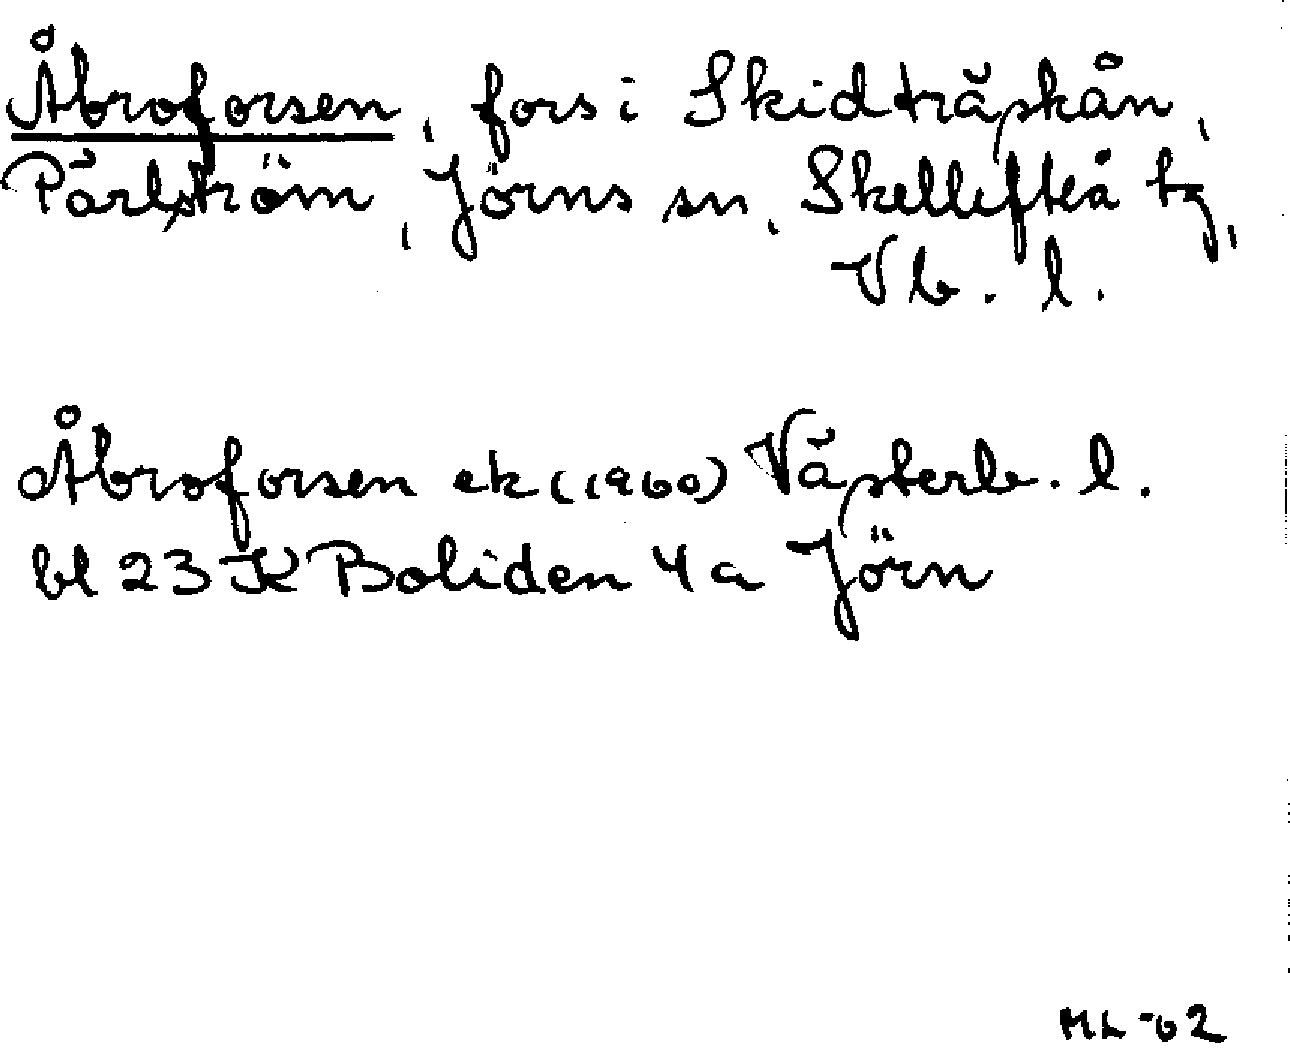 Åbroforsen, fors i Skidträskån,
Pärlström, Jörns sn, Skellefteå tg,
Vb. l.
Åbroforsen ek (1960) Västerb. l.
bl 23 K Boliden 4 a Jörn
ML -62